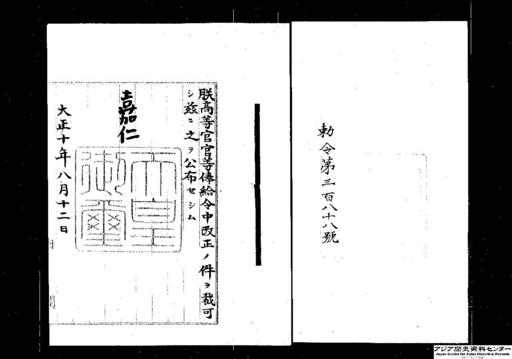 勅令第三百八十八號
朕高等官官等俸給令中改正ノ件ヲ裁可
シ茲ニ之ヲ公布セシム
嘉仁
天皇御璽
大正十年八月十二日
アジア歴史資料センター
Japan Center for Asian Historical Records